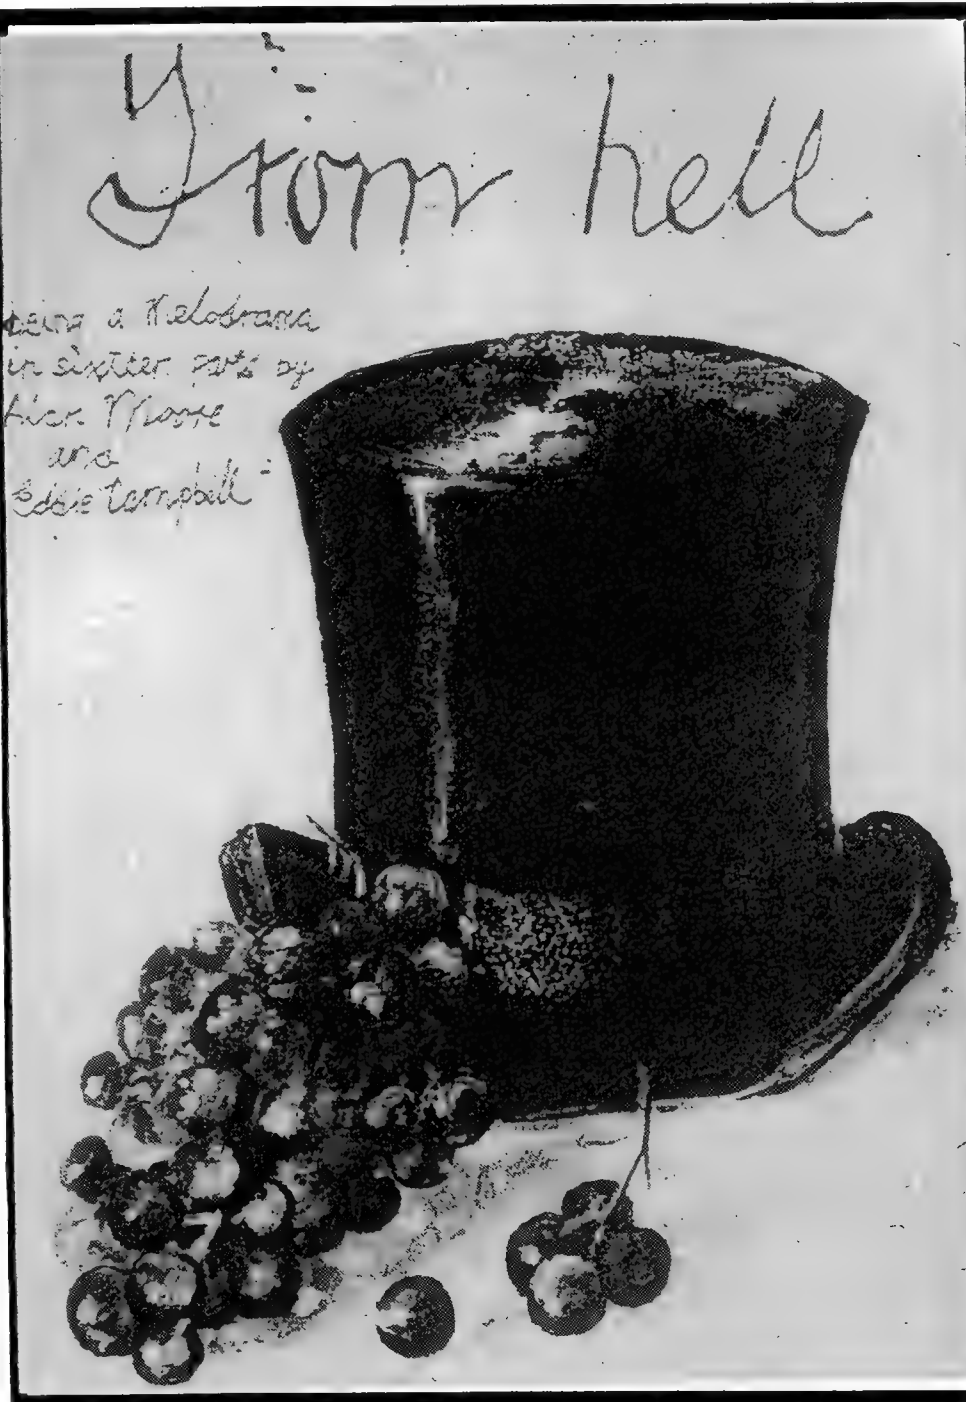 From hell
being a Melodrama
in sixteen parts by
Alan Moore
and
Eddie Campbell